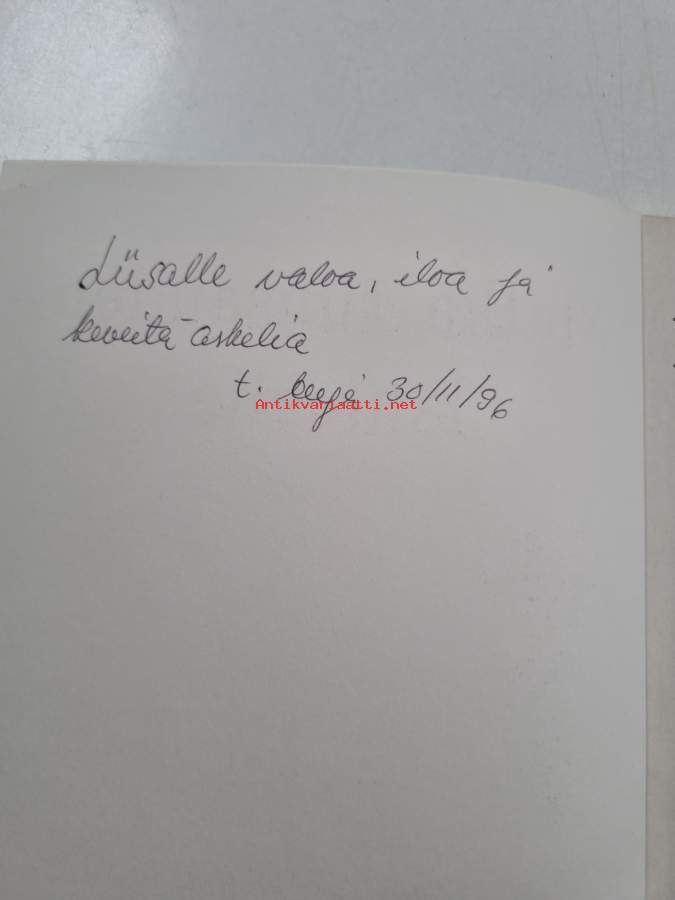 Liisalle valoa, iloa ja
keveitä askelia
t. 30/11/96
Antikvariaatti.net